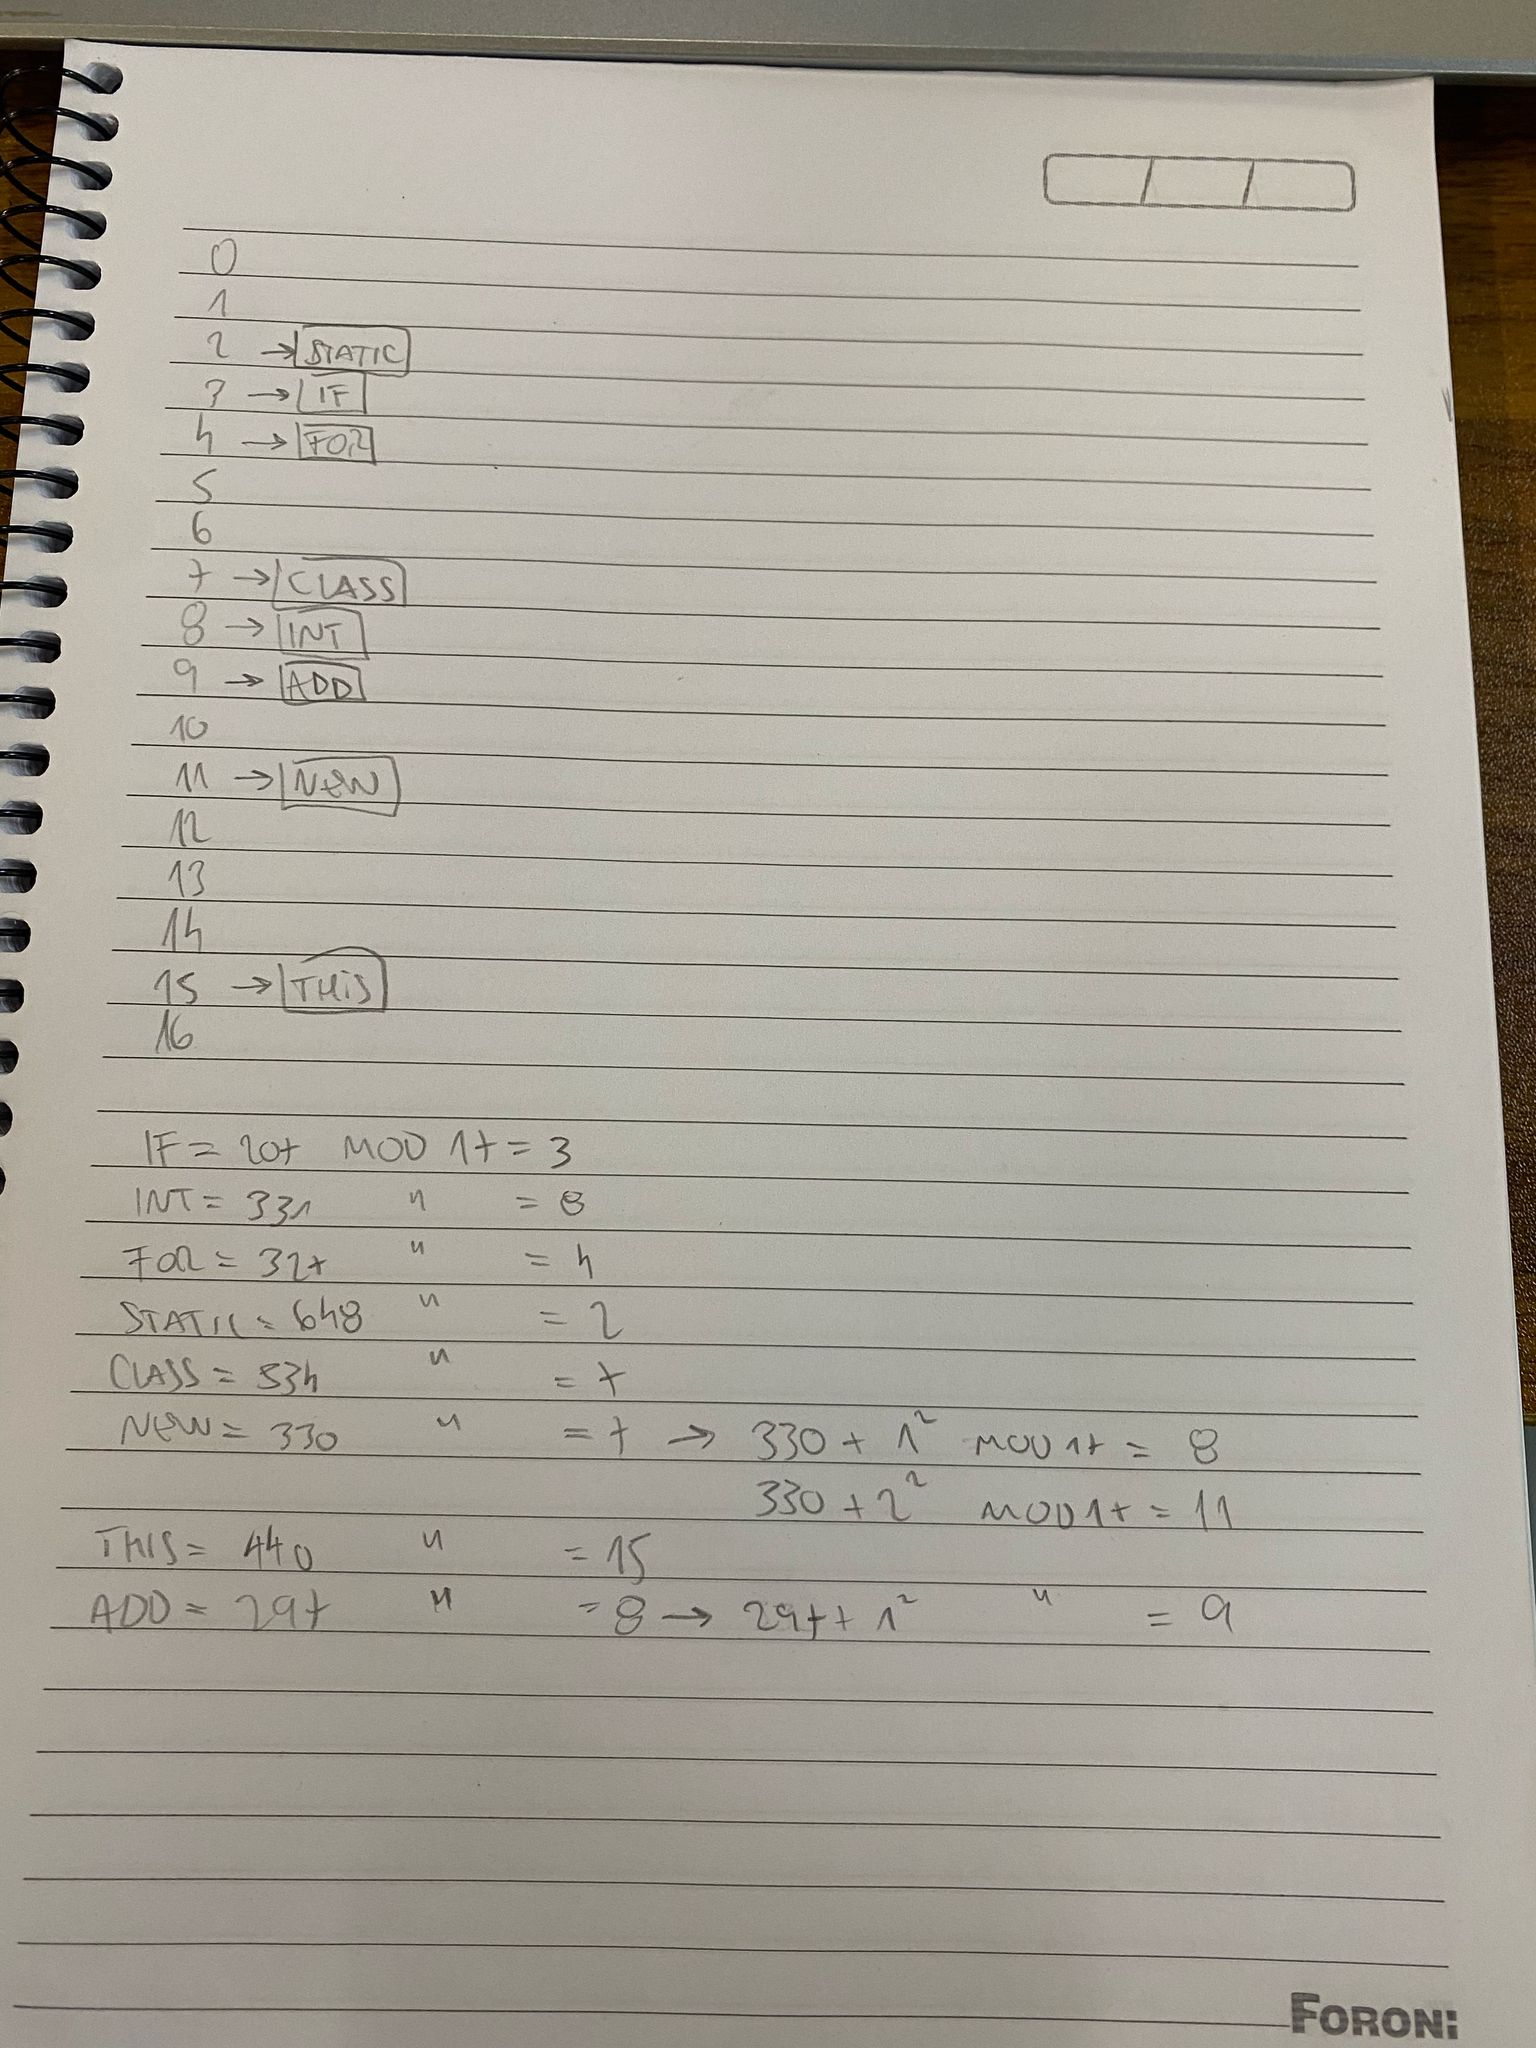 0
1
2 → STATIC
3 → IF
4 → FOR
5
6
7 → CLASS
8 → INT
9 → ADD
10
11 → NEW
12
13
14
15 → THIS
16
IF = 207 MOD 17 = 3
INT = 331 " = 8
FOR = 327 " = 4
STATIC = 648 " = 2
CLASS = 534 " = 7
NEW = 330 " = 7 → 330 + 1² MOD 17 = 8
330 + 2² MOD 17 = 11
THIS = 440 " = 15
ADD = 297 " = 8 → 297 + 1² " = 9
FORONI